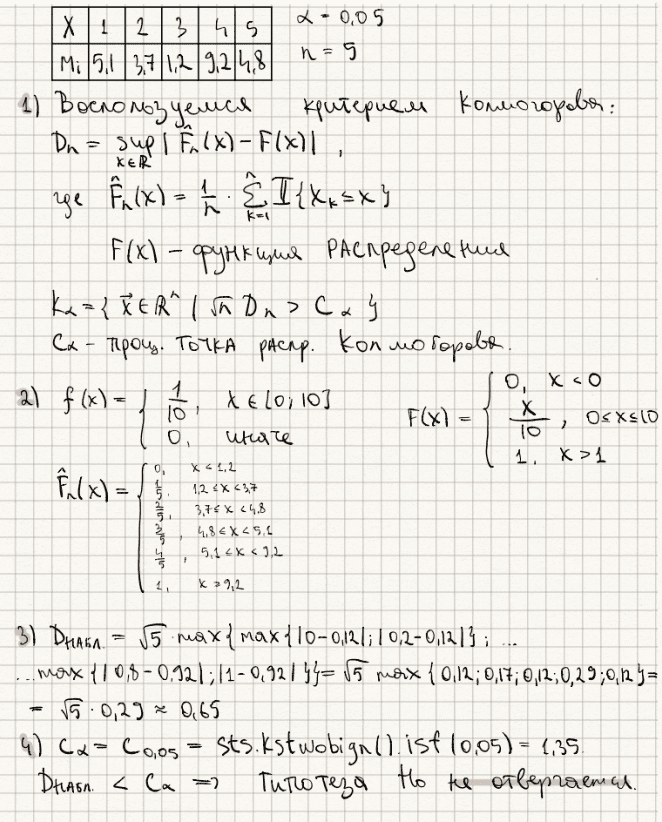 X 1 2 3 4 5
Mi 5,1 3,7 1,2 9,2 4,8
α = 0,05
n = 5
1) Воспользуемся критерием Колмогорова:
Dn = sup x∈ℝ | F̂n(x) − F(x)| ,
где F̂n(x) = 1/n · Σ k=1 n 𝕀{Xk ≤ x}
F(x) − функция распределения
Kα = { x⃗ ∈ ℝⁿ | √n Dn > Cα }
Cα − проц. точка распр. Колмогорова.
2) f(x) = { 1/10, x ∈ [0; 10]
0, иначе
F(x) = { 0, x < 0
x/10, 0 ≤ x ≤ 10
1, x > 1
F̂n(x) = { 0, x < 1,2
1/5, 1,2 ≤ x < 3,7
2/5, 3,7 ≤ x < 4,8
3/5, 4,8 ≤ x < 5,1
4/5, 5,1 ≤ x < 9,2
1, x ≥ 9,2
3) Dнабл. = √5 · max{max{|0−0,12|; |0,2−0,12|}; ...
...max{|0,8−0,92|; |1−0,92|}} = √5 max{0,12; 0,17; 0,12; 0,29; 0,12} =
= √5 · 0,29 ≈ 0,65
4) Cα = C0,05 = sts.kstwobign().isf(0,05) = 1,35.
Dнабл. < Cα => Гипотеза H0 не отвергается.